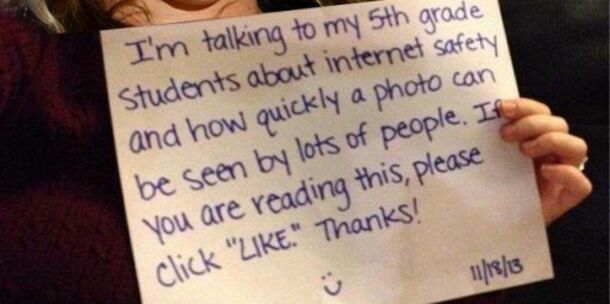 I'm talking to my 5th grade
students about internet safety
and how quickly a photo can
be seen by lots of people. If
you are reading this, please
click "LIKE." Thanks!
11/18/13